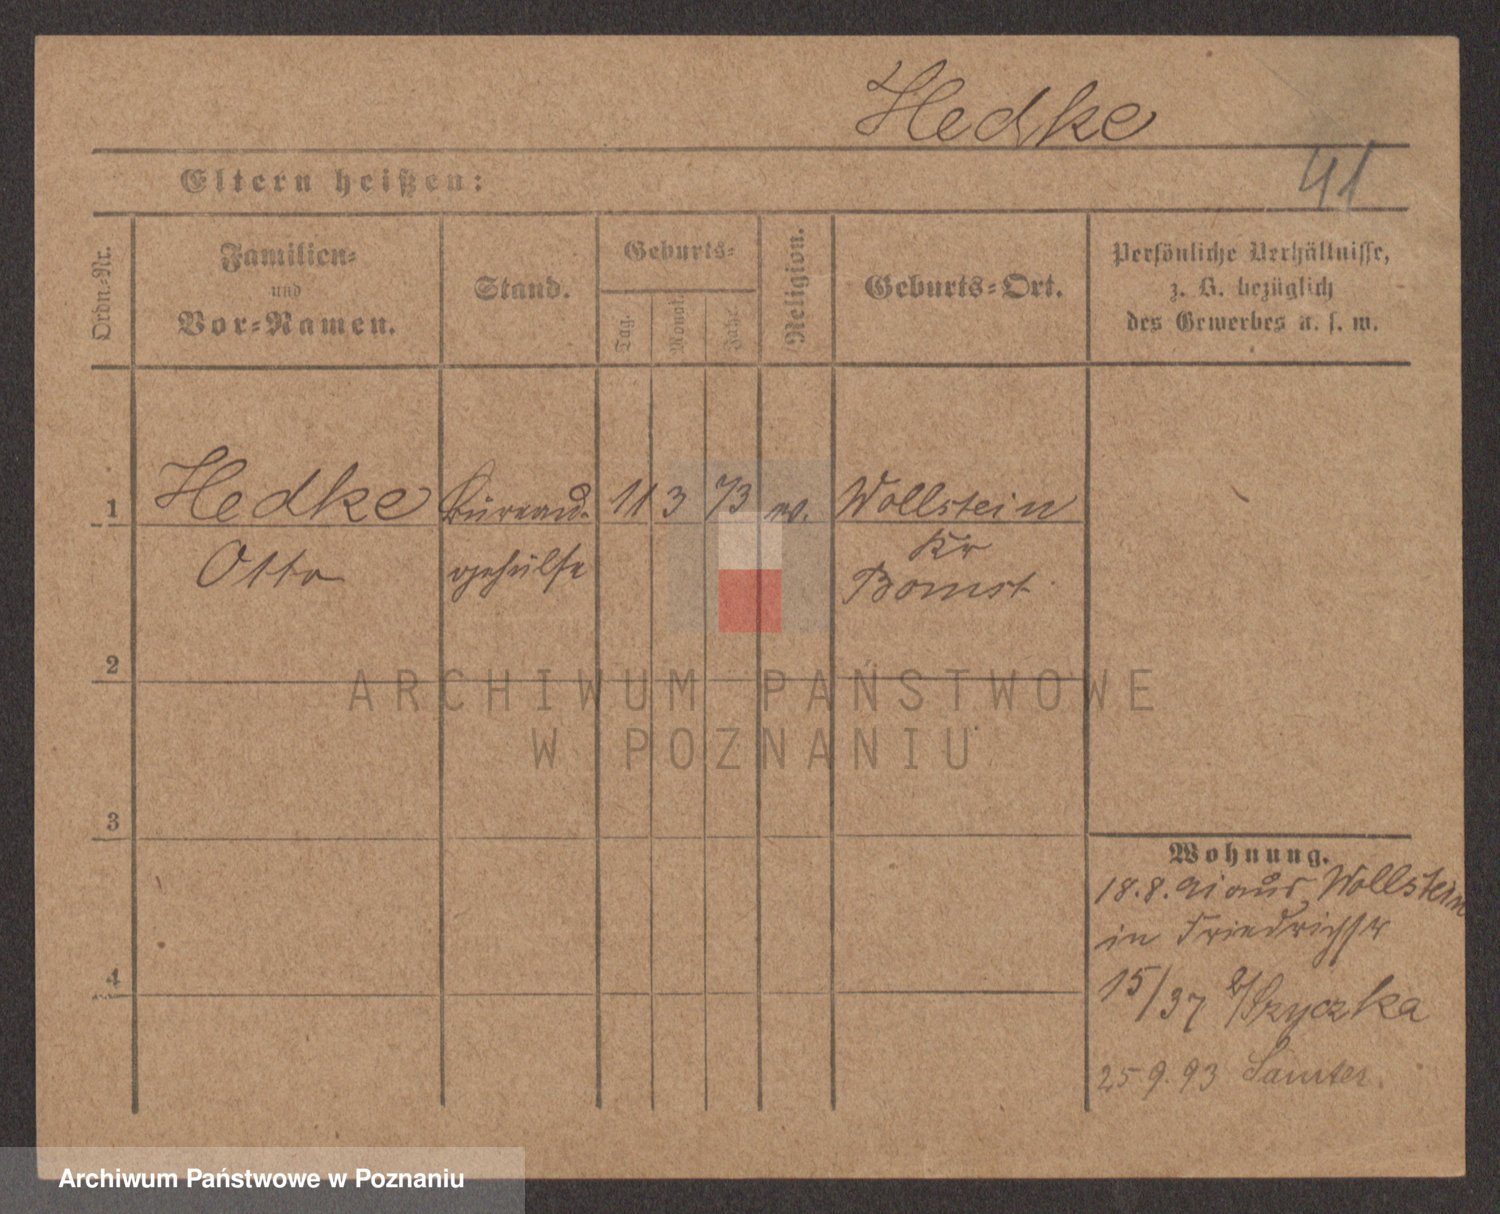 Hedke
41
Eltern heißen:
Ordn.-Nr.
Familien-
und
Vor-Namen.
Stand.
Geburts-
Tag.
Monat.
Jahr.
Religion.
Geburts-Ort.
Persönliche Verhältnisse,
z. B. bezüglich
des Gewerbes u. s. w.
1 Hedke Büreau- 11 3 73 ev. Wollstein
Otto gehülfe Kr
Bomst
2
ARCHIWUM PAŃSTWOWE
W POZNANIU
3
Wohnung.
18.8.91 aus Wollstein
in Friedrichstr
4
15/37 b/Szyczka
25 9. 93 Samter.
Archiwum Państwowe w Poznaniu